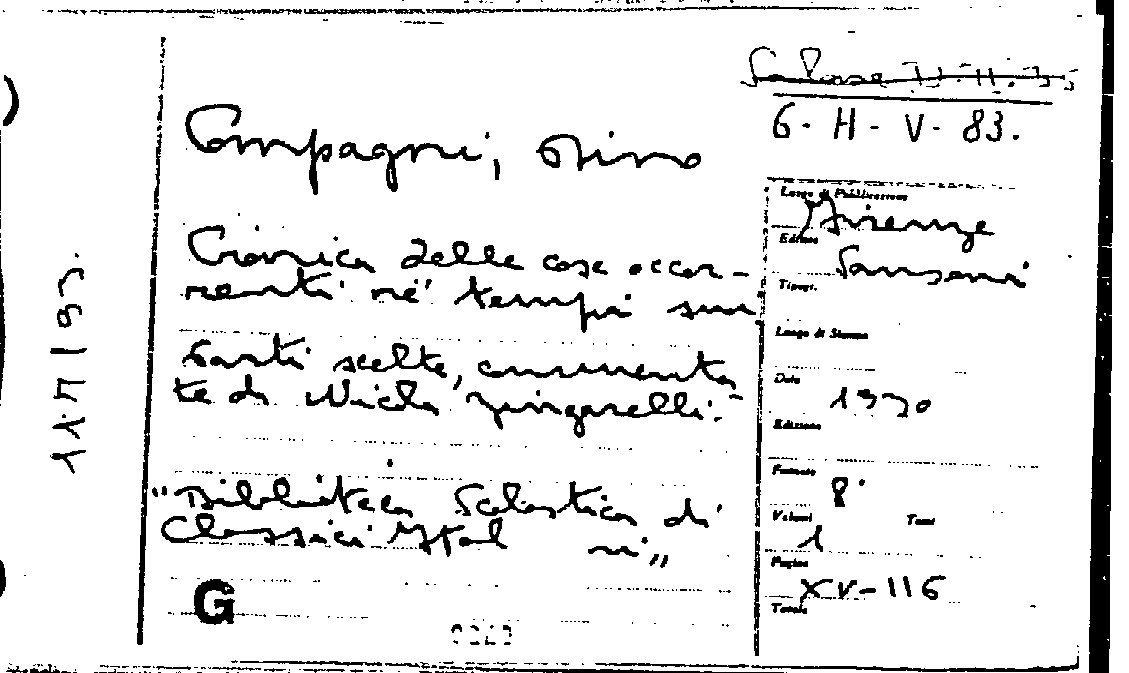 6 - H - V - 83.
Compagni, Dino
Cronica delle cose occor-
renti ne' tempi suoi
Parti scelte, commenta
te da Nicola Zingarelli.
"Biblioteca Scolastica di
Classici Ital ni"
G
Luogo di Pubblicazione
Firenze
Editore
Sansoni
Tipogr.
Luogo di Stampa
Data
1930
Edizione
Formato
8°
Volumi Tomi
1
Pagine
XV-116
Tavole